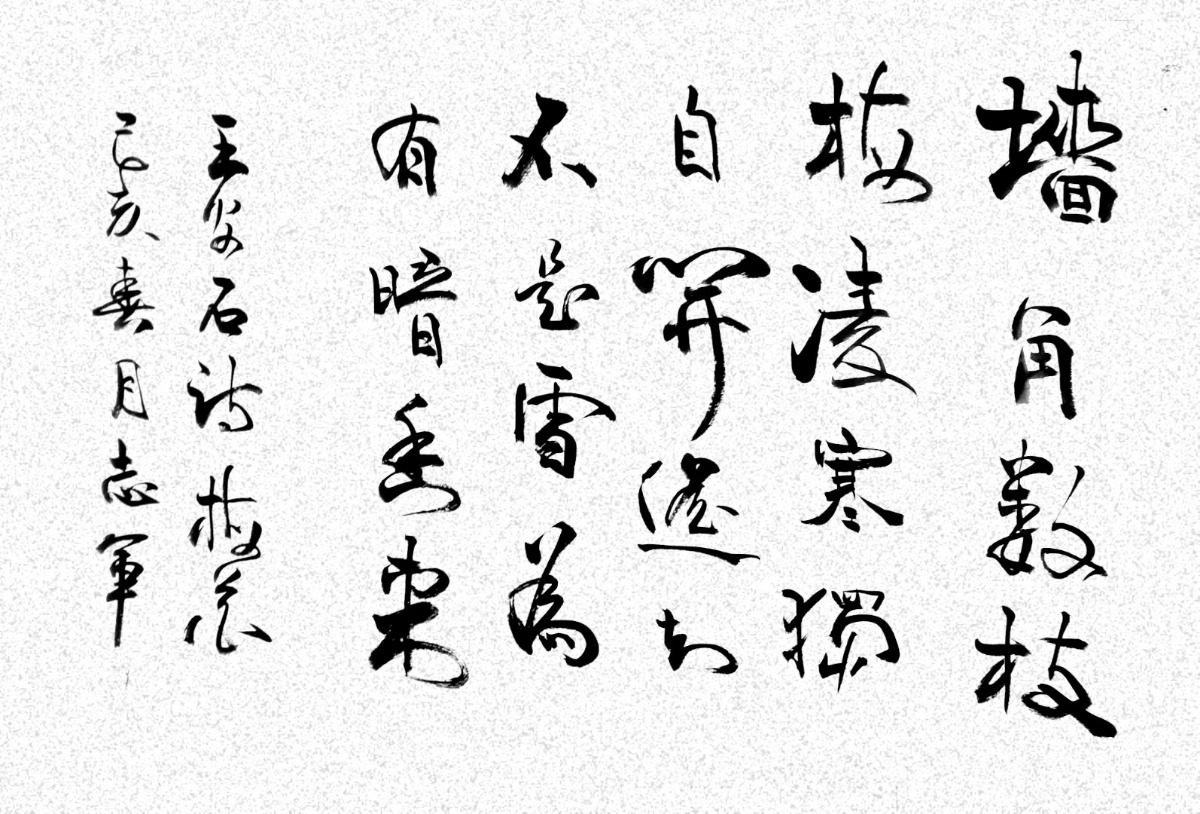 墙角数枝
梅凌寒獨
自開遥知
不是雪為
有暗香来
王安石诗梅花
己亥春月志軍